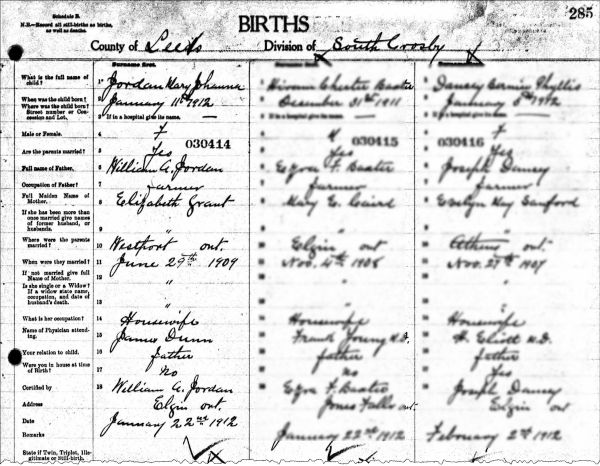 Schedule B.
N.B.—Record all still-births as births, as well as deaths.
BIRTHS
285
County of Leeds Division of South Crosby
Surname first.
What is the full name of child? 1 Jordan Mary Johanna
When was the child born? 2 January 11th 1912
Where was the child born? Street number or Concession and Lot. 3 If in a hospital give its name.
Male or Female. 4 F
Are the parents married? 5 Yes 030414
Full name of Father. 6 William A. Jordan
Occupation of Father? 7 Farmer
Full Maiden Name of Mother. 8 Elizabeth Grant
If she has been more than once married give names of former husband, or husbands. 9 "
Where were the parents married? 10 Westport ont.
When were they married? 11 June 29th 1909
If not married give full Name of Mother. 12 "
Is she single or a Widow? If a widow state name, occupation, and date of husband's death. 13 "
What is her occupation? 14 Housewife
Name of Physician attending. 15 James Dunn
Your relation to child. 16 father
Were you in house at time of Birth? 17 No
Certified by 18 William A. Jordan
Address Elgin ont.
Date January 22nd 1912
Remarks
State if Twin, Triplet, Illegitimate or Still-birth.
Hiram Chester Baxter
December 31st 1911
If in a hospital give its name.
M
Yes 030415
Ezra F. Baxter
farmer
Mary E.
"
Elgin ont
Nov. 4th 1908
"
"
Housewife
Frank Young M.D.
father
No
Ezra F. Baxter
Jones Falls ont.
January 22nd 1912
Phyllis
January 5th 1912
If in a hospital give its name.
F
030416 Yes
Joseph
farmer
Evelyn May Sanford
"
Athens ont.
Nov. 27th 1907
"
"
Housewife
M.D.
father
Yes
Joseph
Elgin ont
February 2nd 1912